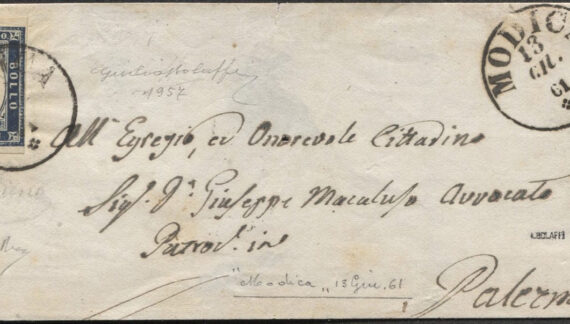 BOLLO
MODICA
13
GIU.
61
Giulio Bolaffi
1957
All' Egregio, ed Onorevole Cittadino
Sig.r D.n Giuseppe Macaluso Avvocato
Patroc.e in
Palermo
"Modica" 13 Giu. 61
A.BOLAFFI